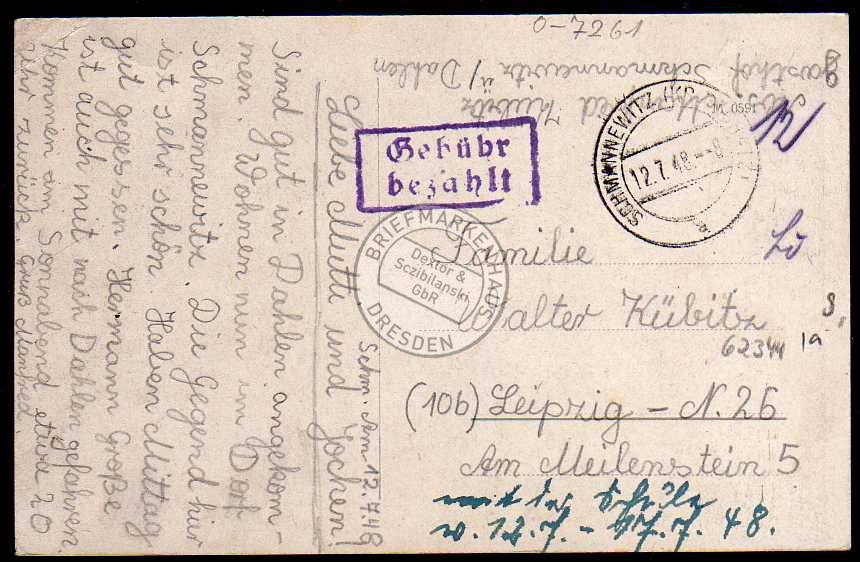 0-7261
Gasthof Schmannewitz ü/Dahlen
Kübitz
Schm. Am 12.7.48
Liebe Mutti und Jochen!
Sind gut in Dahlen angekom-
men. Wohnen nun im Dorf
Schmannewitz. Die Gegend hier
ist sehr schön. Haben Mittag
gut gegessen. Hermann Große
ist auch mit nach Dahlen gefahren.
Kommen am Sonnabend etwa 20
Uhr zurück. Gruß Manfred.
Gebühr
bezahlt
SCHMANNEWITZ
12.7.48.-8
a
M. 0591
12
BRIEFMARKENHAUS
Dextor &
Sczibilanski
GbR
DRESDEN
Familie
Walter Kübitz
62344
1a
(10b) Leipzig - N. 26
Am Meilenstein 5
v. 12.7. - 17.7.48.